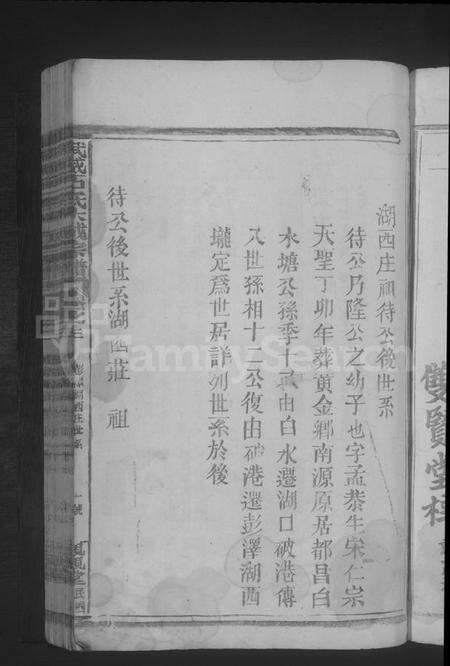 湖西庄祖待公後世系
待公乃隆公之幼子也字孟恭生宋仁宗
天聖丁卯年葬黃金鄉南源原居都昌白
水塘公孫季十五由白水遷湖口破港傳
八世孫相十二公復由破港遷彭澤湖西
壠定爲世居詳列世系於後
待公後世系湖西莊 祖
雙賢堂
FamilySearch